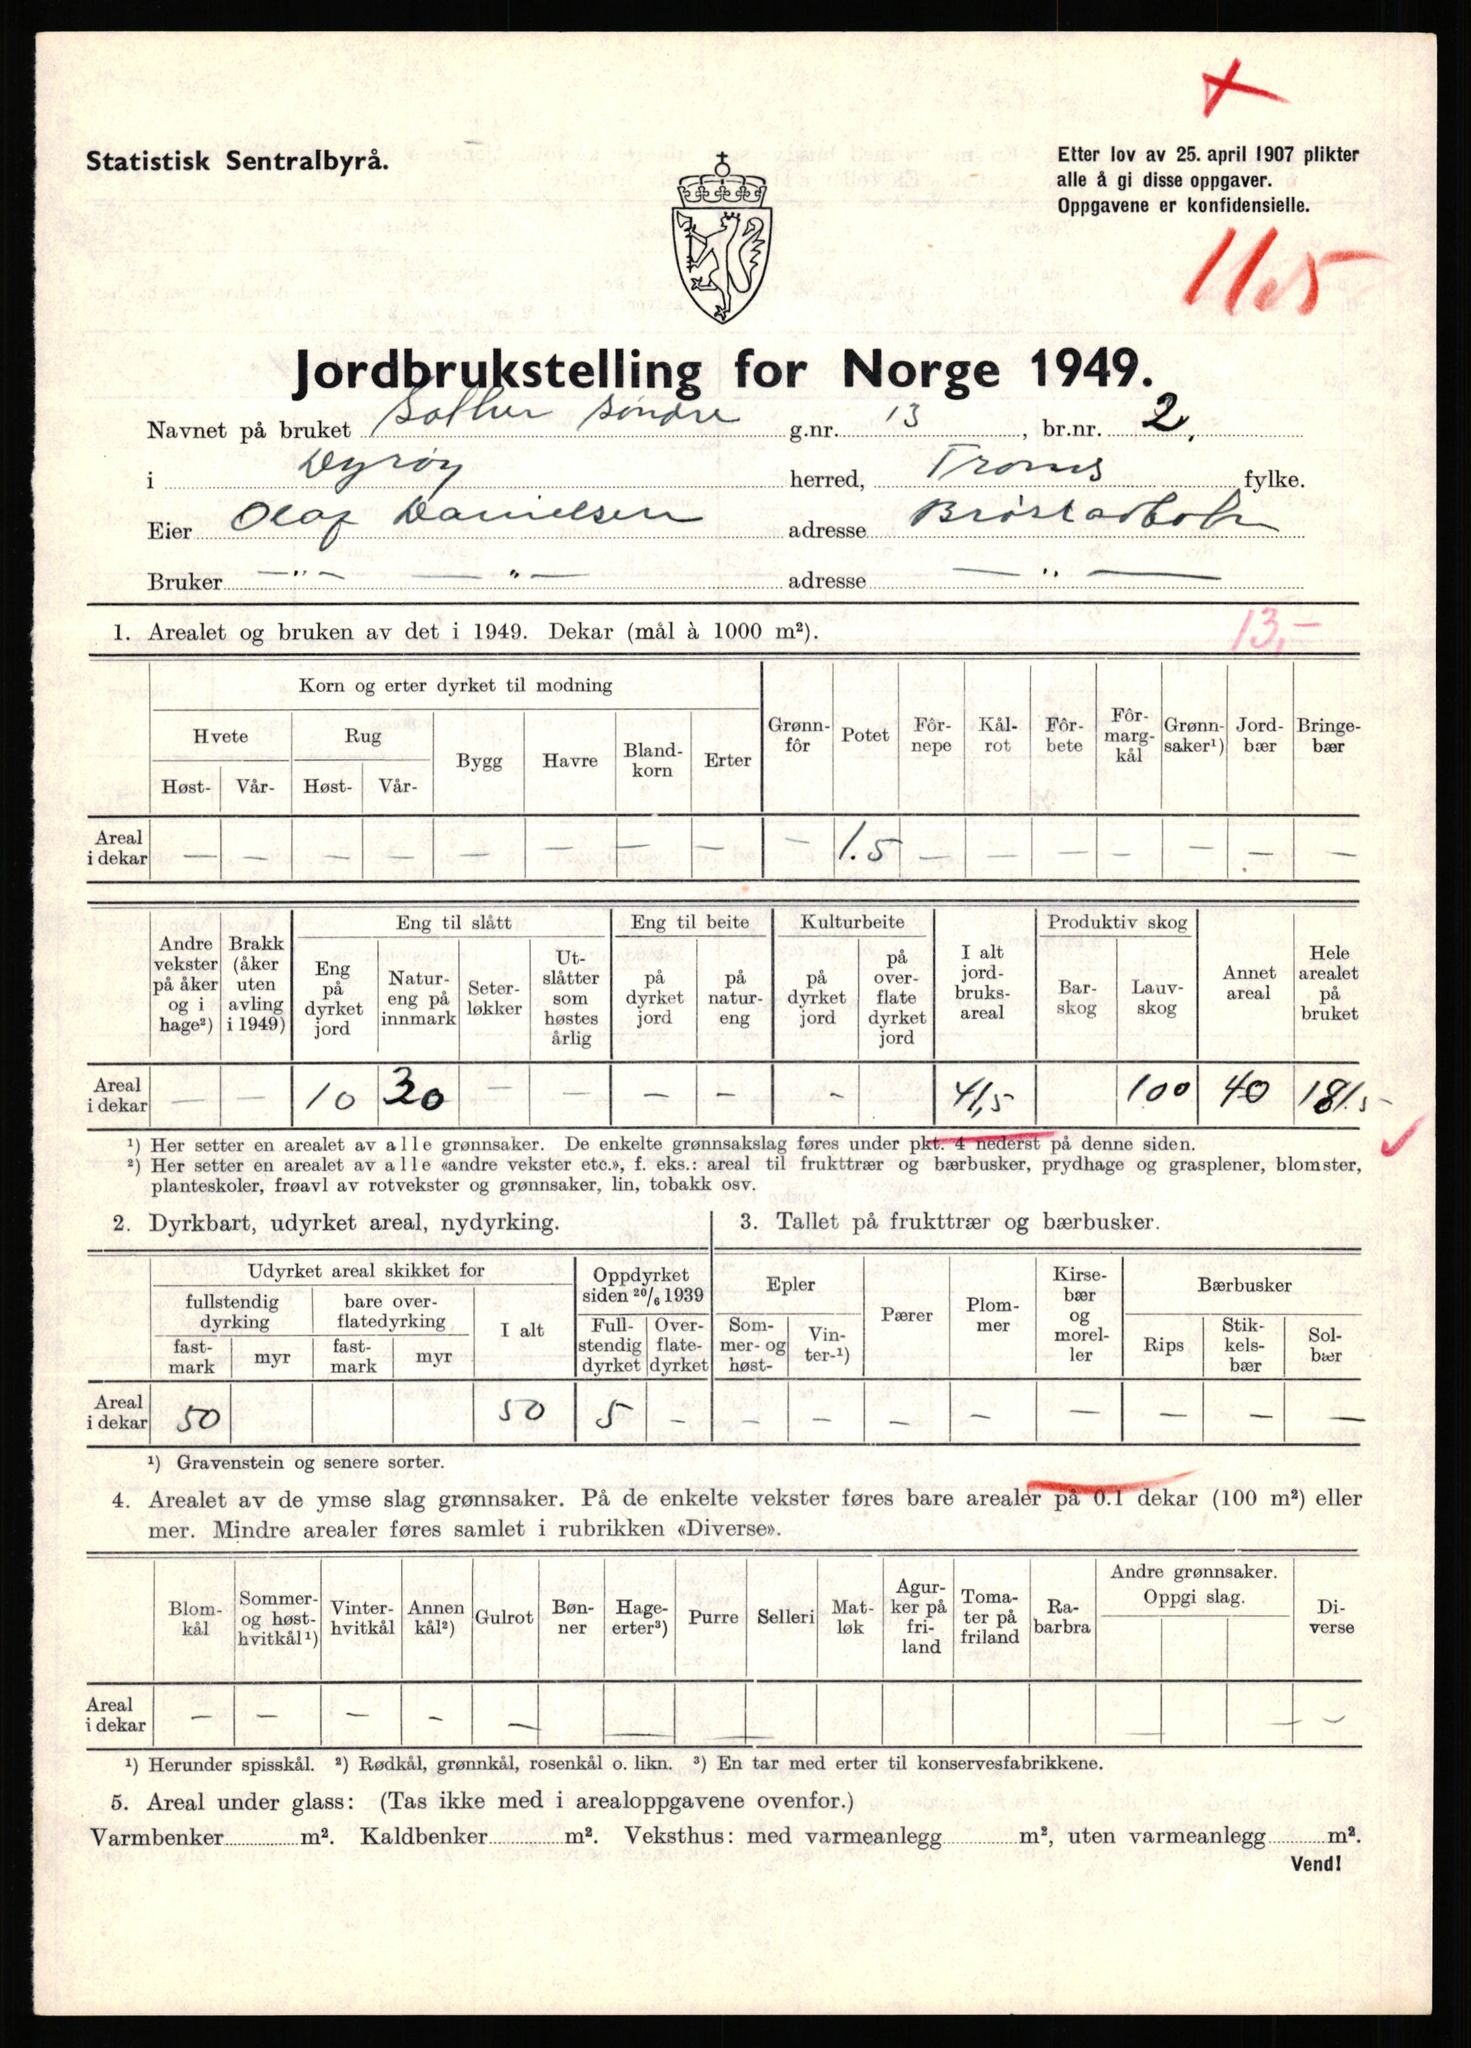 Statistisk Sentralbyrå.
Etter lov av 25. april 1907 plikter
alle å gi disse oppgaver.
Oppgavene er konfidensielle.
11.5
Jordbrukstelling for Norge 1949.
Navnet på bruket Solher søndre g.nr. 13, br.nr. 2,
i Dyrøy herred, Troms fylke.
Eier Olaf Danielsen adresse Brøstadbotn
Bruker — " — — " — adresse — " —
1. Arealet og bruken av det i 1949. Dekar (mål à 1000 m²). 13,-
Korn og erter dyrket til modning
Hvete Rug Bygg Havre Bland-korn Erter Grønn-fôr Potet Fôr-nepe Kål-rot Fôr-bete Fôr-marg-kål Grønn-saker¹) Jord-bær Bringe-bær
Høst- Vår- Høst- Vår-
Areal i dekar — — — — — — — — — 1.5 — — — — — — —
Andre vekster på åker og i hage²) Brakk (åker uten avling i 1949) Eng til slått Eng til beite Kulturbeite I alt jord-bruks-areal Produktiv skog Annet areal Hele arealet på bruket
Eng på dyrket jord Natur-eng på innmark Seter-løkker Ut-slåtter som høstes årlig på dyrket jord på natur-eng på dyrket jord på over-flate dyrket jord Bar-skog Lauv-skog
Areal i dekar — — 10 30 — — — — — 41,5 100 40 181.5
¹) Her setter en arealet av alle grønnsaker. De enkelte grønnsakslag føres under pkt. 4 nederst på denne siden.
²) Her setter en arealet av alle «andre vekster etc.», f. eks.: areal til frukttrær og bærbusker, prydhage og grasplener, blomster,
planteskoler, frøavl av rotvekster og grønnsaker, lin, tobakk osv.
2. Dyrkbart, udyrket areal, nydyrking.
Udyrket areal skikket for Oppdyrket siden 20/6 1939
fullstendig dyrking bare over-flatedyrking I alt Full-stendig dyrket Over-flate-dyrket
fast-mark myr fast-mark myr
Areal i dekar 50 50 5 —
3. Tallet på frukttrær og bærbusker.
Epler Pærer Plom-mer Kirse-bær og morel-ler Bærbusker
Som-mer- og høst- Vin-ter-¹) Rips Stik-kels-bær Sol-bær
— — — — — — — —
¹) Gravenstein og senere sorter.
4. Arealet av de ymse slag grønnsaker. På de enkelte vekster føres bare arealer på 0.1 dekar (100 m²) eller
mer. Mindre arealer føres samlet i rubrikken «Diverse».
Blom-kål Sommer- og høst-hvitkål¹) Vinter-hvitkål Annen kål²) Gulrot Bøn-ner Hage-erter³) Purre Selleri Mat-løk Agur-ker på fri-land Toma-ter på friland Ra-barbra Andre grønnsaker. Oppgi slag. Di-verse
Areal i dekar — — — — — — — — — —
¹) Herunder spisskål. ²) Rødkål, grønnkål, rosenkål o. likn. ³) En tar med erter til konservesfabrikkene.
5. Areal under glass: (Tas ikke med i arealoppgavene ovenfor.)
Varmbenker m². Kaldbenker m². Veksthus: med varmeanlegg m², uten varmeanlegg m².
Vend!